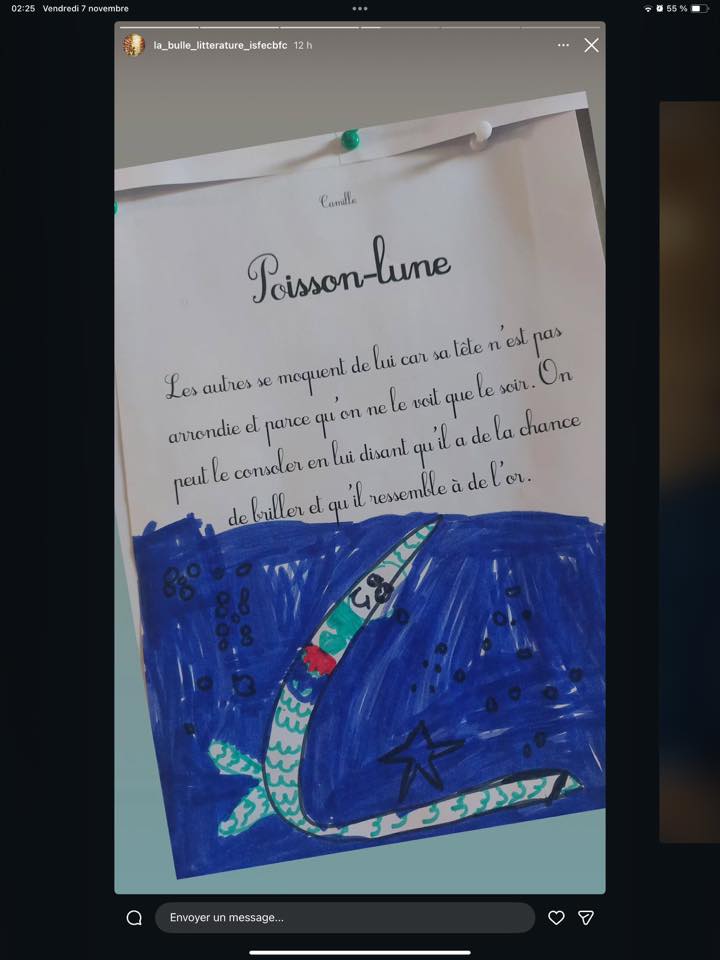 02:25 Vendredi 7 novembre
55 %
la_bulle_litterature_isfecbfc 12 h
Camille
Poisson-lune
Les autres se moquent de lui car sa tête n'est pas
arrondie et parce qu'on ne le voit que le soir. On
peut le consoler en lui disant qu'il a de la chance
de briller et qu'il ressemble à de l'or.
Envoyer un message...